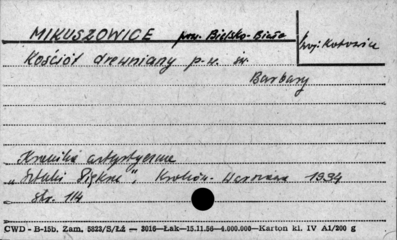 MIKUSZOWICE pow. Bielsko-Biała
woj. Katowice
Kościół drewniany p.w. św.
Barbary
Kronika artystyczna
„Sztuki Piękne", Kraków-Warszawa 1934
str. 114
CWD - B-15b, Zam. 5823/S/Łż — 3016—Łak—15.11.56—4.000.000—Karton kl. IV A1/200 g